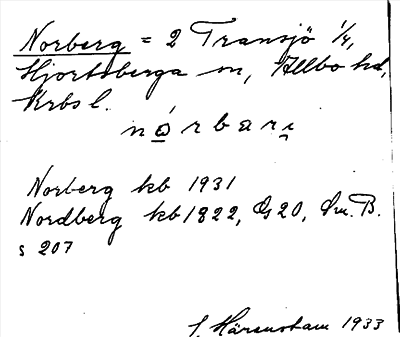 Norberg = 2 Transjö 1/4,
Hjortsberga sn, Allbo hd,
Krbs l.
nǫ́rbarı̨
Norberg kb 1931
Nordberg kb 1822, G20, Sm. B.
s 207
S. Härenstam 1933